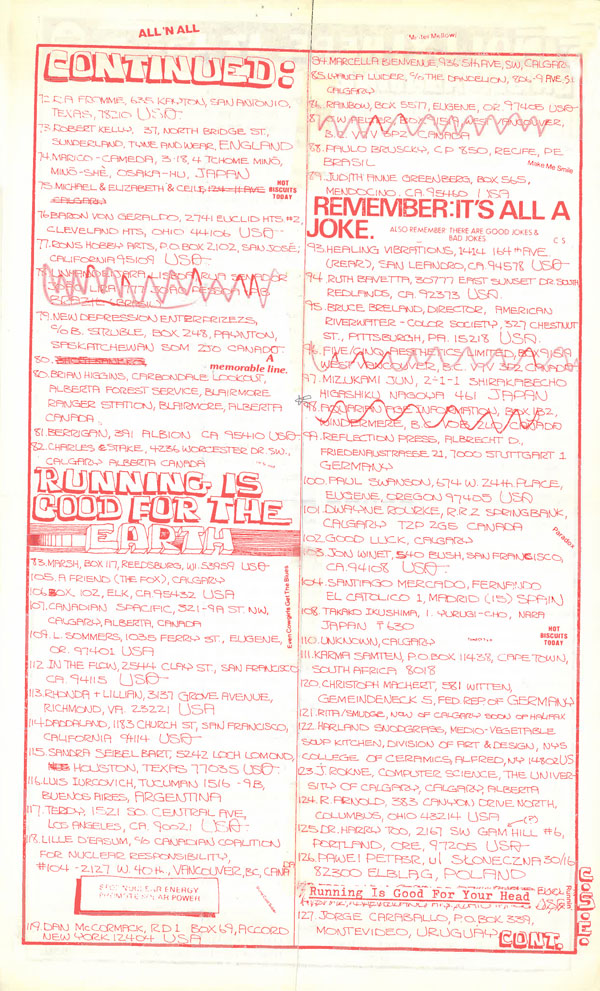 ALL 'N ALL
CONTINUED:
TEXAS, 78210 USA
73. ROBERT KELLY, 37, NORTH BRIDGE ST.,
SUNDERLAND, TYNE AND WEAR, ENGLAND
74. MARICO-CAMEDA, 3-18, 4 TCHOME MINŌ,
MINŌ-SHĒ, OSAKA-HU, JAPAN
75. MICHAEL & ELIZABETH & CEILE
CALGARY
HOT
BISCUITS
TODAY
76. BARON VON GERALDO, 2741 EUCLID HTS #2,
CLEVELAND HTS, OHIO 44106 USA
77. RONS HOBBY ARTS, P.O. BOX 2,102, SAN JOSE,
CALIFORNIA 95109 USA
79. NEW DEPRESSION ENTERPRIZES,
% B. STRUBLE, BOX 248, PAYNTON,
SASKATCHEWAN SOM 2J0 CANADA
80.
A
memorable line.
80. BRIAN HIGGINS, CARBONDALE LOOKOUT,
ALBERTA FOREST SERVICE, BLAIRMORE
RANGER STATION, BLAIRMORE, ALBERTA
CANADA
81. BERRIGAN, 391 ALBION CA 95410 USA
82. CHARLES & STAKE, 4236 WORCESTER DR. SW.,
CALGARY ALBERTA CANADA
RUNNING IS
GOOD FOR THE
EARTH
83. MARSH, BOX 117, REEDSBURG, WI. 53959 USA
105. A FRIEND (THE FOX), CALGARY
106. BOX 102, ELK, CA, 95432 USA
107. CANADIAN SPACIFIC, 321-9A ST. NW,
CALGARY, ALBERTA, CANADA
Even Cowgirls Get The Blues
109. L. SOMMERS, 1035 FERRY ST., EUGENE,
OR. 97401 USA
112. IN THE FLOW, 2544 CLAY ST., SAN FRANCISCO
CA 94115 USA
113. RHONDA + LILLIAN, 3137 GROVE AVENUE,
RICHMOND, VA. 23221 USA
114. DADDALAND, 1183 CHURCH ST, SAN FRANCISCO,
CALIFORNIA 94114 USA
115. SANDRA SEIBEL BART, 5242 LOCH LOMOND,
HOUSTON, TEXAS 77035 USA
116. LUIS IURCOVICH, TUCUMAN 1516 - 9B,
BUENOS AIRES, ARGENTINA
117. TEDDY, 1521 SO. CENTRAL AVE,
LOS ANGELES, CA. 90021 USA
118. LILLE D'EASUM, % CANADIAN COALITION
FOR NUCLEAR RESPONSIBILITY,
#104 - 2127 W. 40th, VANCOUVER, BC, CANADA
119. DAN McCORMACK, RD 1 BOX 69, ACCORD
NEW YORK 12404 USA
84. MARCELLA BIENVENUE, 936 5th AVE, SW, CALGARY
CALGARY
86. RAINBOW, BOX 5517, EUGENE, OR. 97405 USA
88. PAULO BRUSCKY, CP 850, RECIFE, PE
BRASIL
Make Me Smile
89. JUDITH ANNE GREENBERG, BOX 565,
MENDOCINO, CA. 95460 USA
REMEMBER: IT'S ALL A
JOKE.
ALSO REMEMBER THERE ARE GOOD JOKES &
BAD JOKES
C S
93. HEALING VIBRATIONS, 1414 164th AVE
(REAR), SAN LEANDRO, CA 94578 USA
94. RUTH BAVETTA, 30777 EAST SUNSET DR SOUTH
REDLANDS, CA. 92373 USA
95. BRUCE BRELAND, DIRECTOR, AMERICAN
RIVERWATER-COLOR SOCIETY, 327 CHESTNUT
ST., PITTSBURGH, PA. 15218 USA
WEST VANCOUVER, B.C. V7V 3P2 CANADA
97. MIZUKAMI JUN, 2-1-1 SHIRAKABECHO
HIGASHIKU NAGOYA 461 JAPAN
99. REFLECTION PRESS, ALBRECHT D.,
FRIEDENAUSTRASSE 21, 7000 STUTTGART 1
GERMANY
100. PAUL SWANSON, 674 W. 24th PLACE,
EUGENE, OREGON 97405 USA
101. DWAYNE ROURKE, R.R.2 SPRINGBANK,
CALGARY T2P 2G5 CANADA
102. GOOD LUCK, CALGARY
Paradox
103. JON WINET, 540 BUSH, SAN FRANCISCO,
CA 94108 USA
104. SANTIAGO MERCADO, FERNANDO
EL CATOLICO 1, MADRID (15) SPAIN
108. TAKAKO IKUSHIMA, 1. YURUGI-CHO, NARA
JAPAN 〒630
HOT
BISCUITS
TODAY
110. UNKNOWN, CALGARY
111. KARMA SAMTEN, P.O. BOX 11438, CAPE TOWN,
SOUTH AFRICA 8018
120. CHRISTOPH MACHERT, 581 WITTEN,
GEMEINDENECK 5, FED. REP OF GERMANY
121. RITA/SMUDGE, NOW OF CALGARY SOON OF HALIFAX
122. HARLAND SNODGRASS, MEDIO-VEGETABLE
SOUP KITCHEN, DIVISION OF ART & DESIGN, NYS
COLLEGE OF CERAMICS, ALFRED, NY 14802 US
123. J. ROKNE, COMPUTER SCIENCE, THE UNIVER-
SITY OF CALGARY, CALGARY, ALBERTA
124. R. ARNOLD, 383 CANYON DRIVE NORTH,
COLUMBUS, OHIO 43214 USA
125. DR. HARRY TOO, 2167 SW GAM HILL #6,
PORTLAND, ORE, 97205 USA
126. PAWEL PETASZ, ul SŁONECZNA 30/16
82300 ELBLĄG, POLAND
Running Is Good For Your Head
USA
127. JORGE CARABALLO, P.O. BOX 339,
MONTEVIDEO, URUGUAY
CONT.